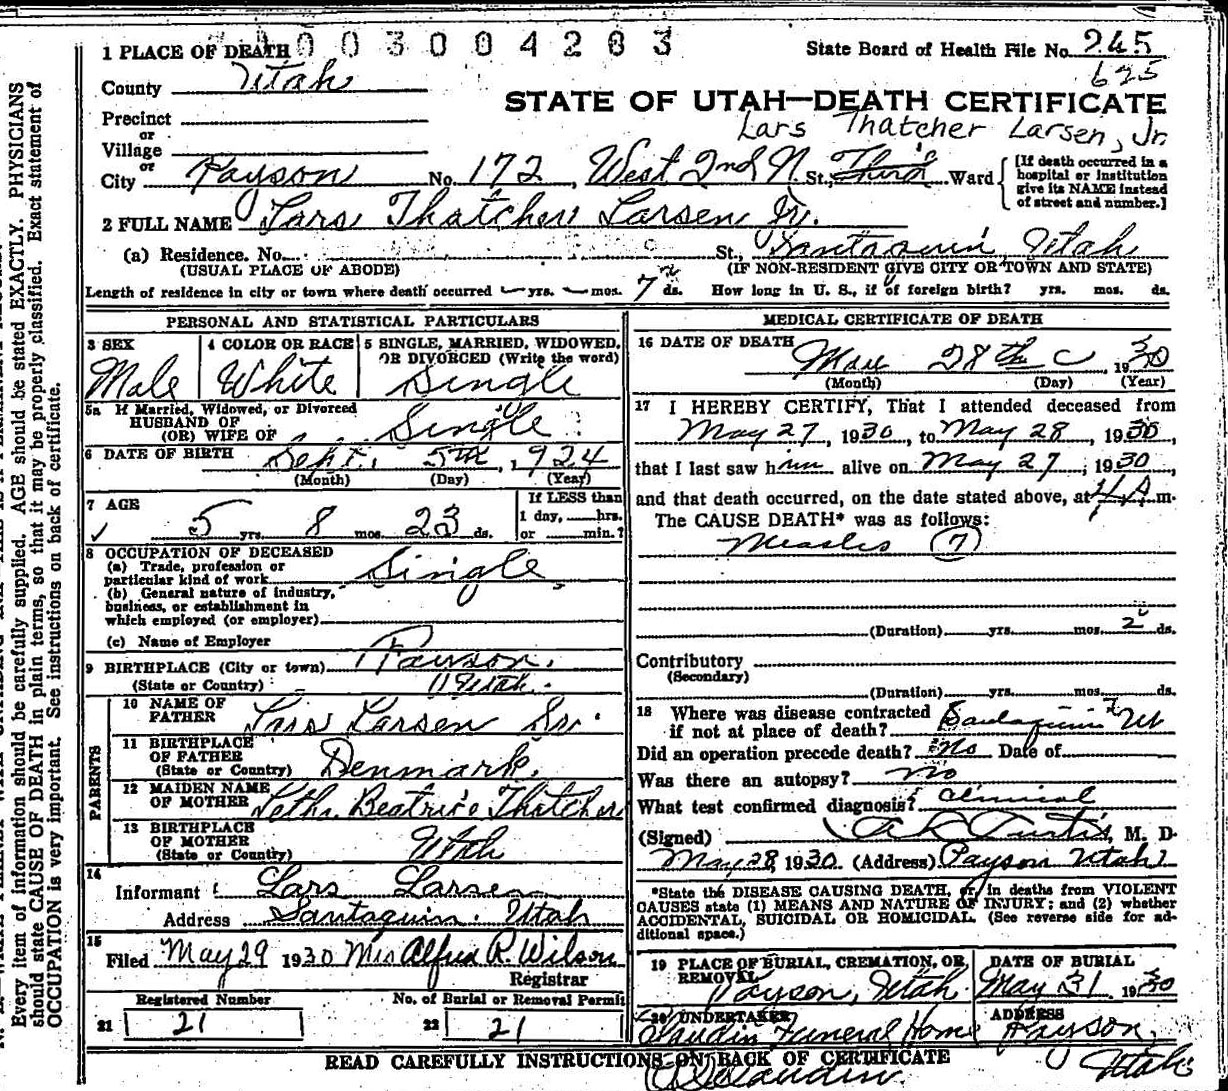 1 PLACE OF DEATH 003004203 State Board of Health File No. 245
County Utah 625
STATE OF UTAH—DEATH CERTIFICATE
Precinct
or
Village
Lars Thatcher Larsen, Jr.
or
City Payson No. 172, West 2nd N. St., Third Ward
[If death occurred in a
hospital or institution
give its NAME instead
of street and number.]
2 FULL NAME Lars Thatcher Larsen Jr.
(a) Residence. No. St., Santaquin, Utah
(USUAL PLACE OF ABODE) (IF NON-RESIDENT GIVE CITY OR TOWN AND STATE)
Length of residence in city or town where death occurred yrs. mos. 7 ds. How long in U. S., if of foreign birth? yrs. mos. ds.
PERSONAL AND STATISTICAL PARTICULARS
3 SEX 4 COLOR OR RACE 5 SINGLE, MARRIED, WIDOWED,
OR DIVORCED (Write the word)
Male White Single
5a If Married, Widowed, or Divorced
HUSBAND OF
(OR) WIFE OF Single
6 DATE OF BIRTH Sept. 5th, 1924
(Month) (Day) (Year)
7 AGE If LESS than
1 day, hrs.
5 yrs. 8 mos. 23 ds. or min.?
8 OCCUPATION OF DECEASED
(a) Trade, profession or
particular kind of work Single
(b) General nature of industry,
business, or establishment in
which employed (or employer)
(c) Name of Employer
9 BIRTHPLACE (City or town) Payson.
(State or Country) Utah.
PARENTS
10 NAME OF
FATHER Lars Larsen Sr.
11 BIRTHPLACE
OF FATHER
(State or Country) Denmark.
12 MAIDEN NAME
OF MOTHER Beatrice Thatcher
13 BIRTHPLACE
OF MOTHER
(State or Country) Utah
14
Informant Lars Larsen
Address Santaquin. Utah
15
Filed May 29 1930 Mrs Alfred R. Wilson
Registrar
Registered Number No. of Burial or Removal Permit
21 21 22 21
MEDICAL CERTIFICATE OF DEATH
16 DATE OF DEATH May 28th 1930
(Month) (Day) (Year)
17 I HEREBY CERTIFY, That I attended deceased from
May 27, 1930, to May 28, 1930
that I last saw him alive on May 27, 1930,
and that death occurred, on the date stated above, at 4 A m.
The CAUSE DEATH* was as follows:
Measles (7)
(Duration) yrs. mos. 2 ds.
Contributory
(Secondary)
(Duration) yrs. mos. ds.
18 Where was disease contracted
if not at place of death? Santaquin Ut
Did an operation precede death? No Date of
Was there an autopsy? no
What test confirmed diagnosis? Clinical
(Signed) Curtis, M. D.
May 28, 1930 (Address) Payson Utah
*State the DISEASE CAUSING DEATH, or, in deaths from VIOLENT
CAUSES state (1) MEANS AND NATURE OF INJURY; and (2) whether
ACCIDENTAL, SUICIDAL OR HOMICIDAL. (See reverse side for ad-
ditional space.)
19 PLACE OF BURIAL, CREMATION, OR
REMOVAL DATE OF BURIAL
Payson, Utah May 31 1930
20 UNDERTAKER ADDRESS
Claudin Funeral Home Payson,
Utah
READ CAREFULLY INSTRUCTIONS ON BACK OF CERTIFICATE
Every item of information should be carefully supplied. AGE should be stated EXACTLY. PHYSICIANS
should state CAUSE OF DEATH in plain terms, so that it may be properly classified. Exact statement of
OCCUPATION is very important. See instructions on back of certificate.